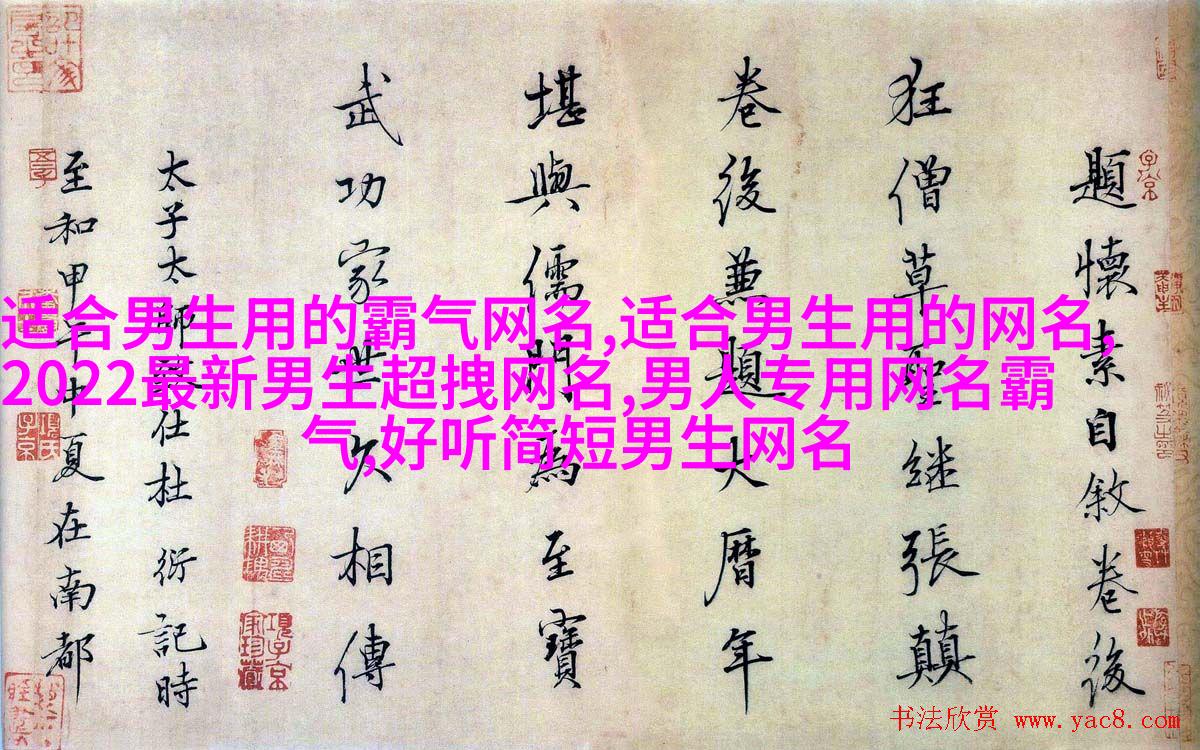 題懷素自敘卷後
狂僧草聖繼張顛
卷後兼題大曆年
堪與儒門為至寶
武功家世久相傳
太子太師致仕杜衍記時
至和甲午中夏在南都
适合男生用的霸气网名,适合男生用的网名,
2022最新男生超拽网名,男人专用网名霸
气,好听简短男生网名
书法欣赏 www.yac8.com